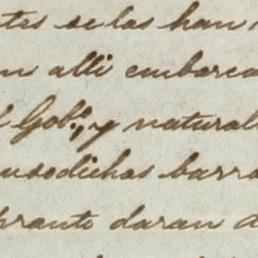 tes se las han
n alli embarca
l Gobº, y natural
usodichas barra
pronto daran a